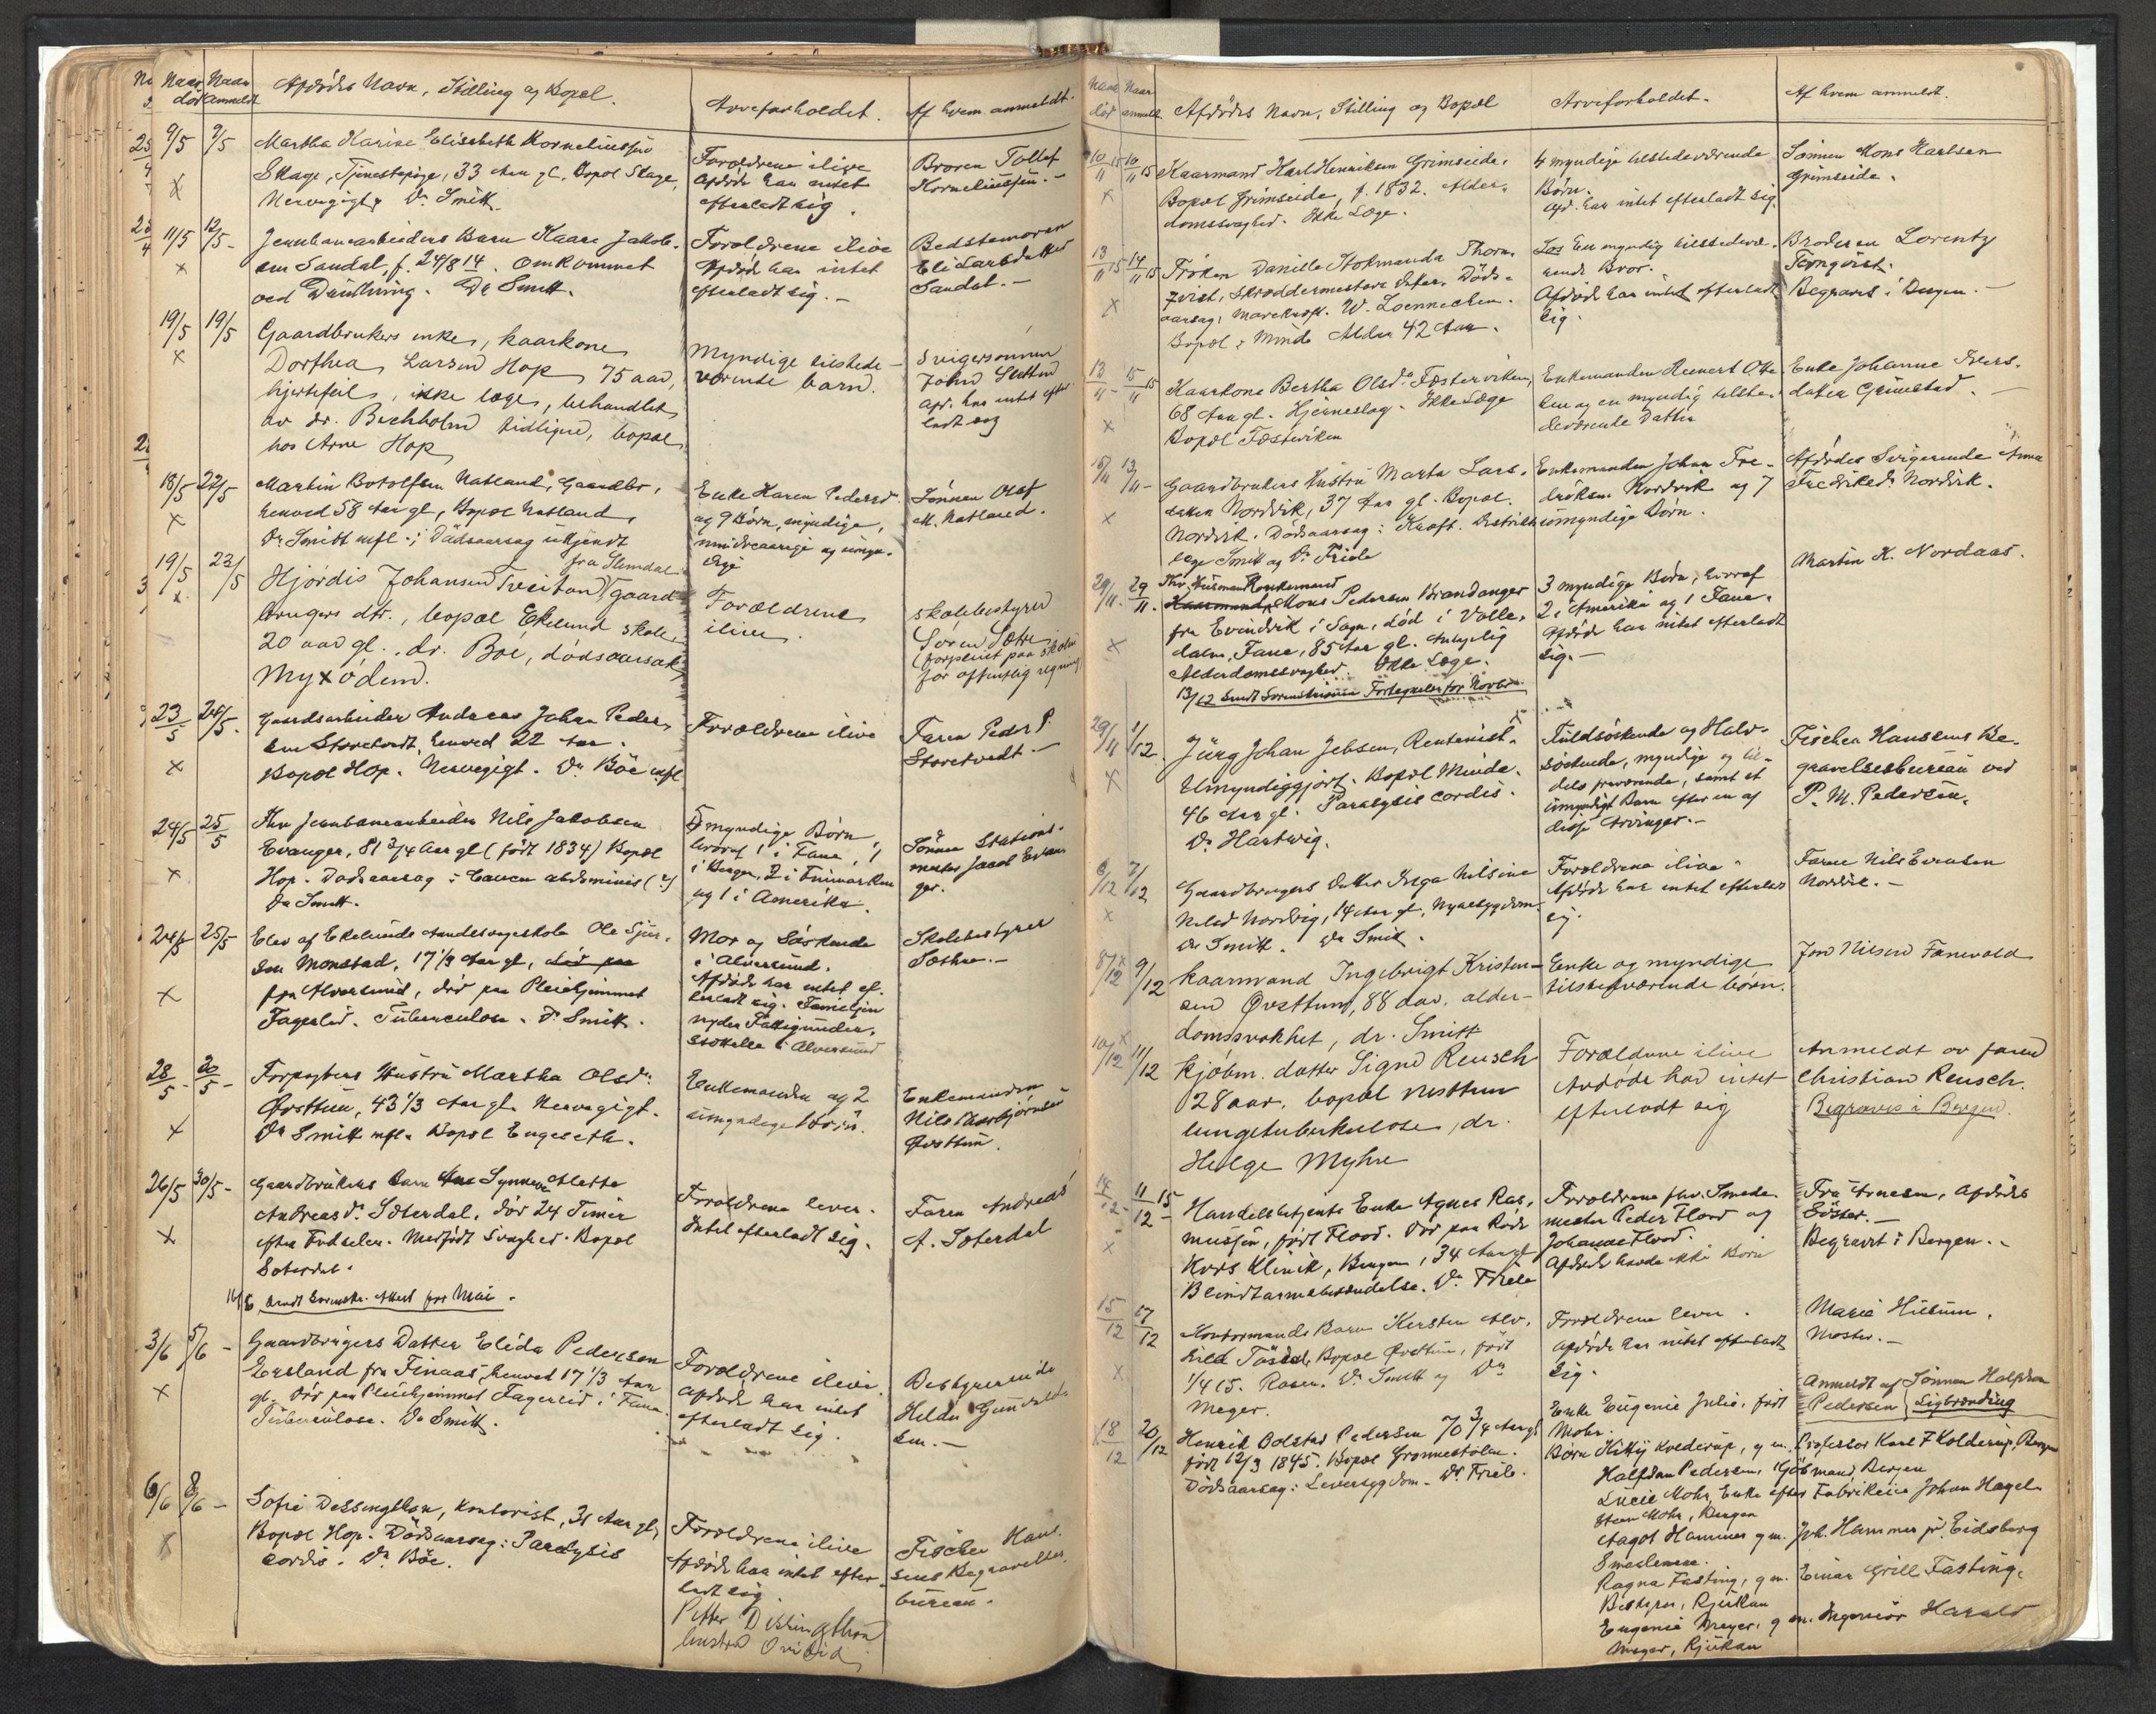 Naar død
Naar anmeldt
Afdødes Navn, Stilling og Bopæl.
Arveforholdet.
Af hvem anmeldt.
9/5 9/5
Martha Karine Elisabeth Korneliussen
Skage, Tjenestepige, 33 Aar gl. Bopæl Skage,
Nervegigt, Dr Smitt.
Forældrene ilive
Afdøde har intet
efterladt sig.
Broren Tollef
Korneliussen.-
11/5 12/5-
Jernbanearbeiders Barn Kaare Jakob-
sen Sandal, f. 24/8 14. Omkommet
ved Drukning. Dr Smitt.
Forældrene ilive
Afdøde har intet
efterladt sig.-
Bedstemoren
Eli Larsdatter
Sandal.-
19/5 19/5
Gaardbrukers enke, kaarkone
Dorthea Larsen Hop, 75 aar,
hjertefeil, ikke læge, behandlet
av dr. Bechholm tidligere, bopæl
hos Arne Hop
Myndige tilstede-
værende barn.
Svigersønnen
John Sletten
Afd. har intet efter
ladt sig
18/5 22/5
Martin Botolfsen Natland, Gaardbr,
henved 58 Aar gl, Bopæl Natland,
Dr Smitt mfl.; Dødsaarsag ukjendt
Enke Karen Pedersd.
og 9 Børn, myndige,
mindreaarige og umyn-
dige
Sønnen Olaf
M. Natland.
19/5 23/5
fra Slimdal
Hjørdis Johansen Tveiton, gaard
brugers dtr., bopæl Ekelund skole
20 aar gl., dr. Böe, dødsaarsak
Myxödem.
Forældrene
ilive.
skolebestyrer
Sören Sæthre
(forpleiet paa skolen
for offentlig regning)
23/5 24/5-
Gaardsarbeider Andreas Johan Peder
sen Storetvedt, henved 22 Aar.
Bopæl Hop. Nervegigt. Dr Böe mfl
Forældrene ilive
Faren Peder P.
Storetvedt.-
24/5 25/5
Fhv Jernbanearbeider Nils Jakobsen
Evanger, 81 3/4 Aar gl (født 1834) Bopæl
Hop. Dødsaarsag: Cancer abdominis (?)
Dr Smitt.
5 myndige Børn,
hvoraf 1 i Fane, 1
i Bergen, 2 i Finmarken
og 1 i Amerika.
Sønnen Stations-
mester Jacob Evan
ger.
24/5 25/5
Elev af Ekelunds Aandssvageskole Ole Sjur-
sen Monstad, 17 1/3 Aar gl, død paa
fra Alversund, død paa Pleiehjemmet
Fagerlid. Tuberculose. Dr Smitt.
Mor og Søskende
i Alversund.
Afdøde har intet ef-
terladt sig. Familjen
nyder Fattigunder-
støttelse i Alversund
Skolebestyrer
Sæthre.-
28/5- 30/5-
Forpagters Hustru Martha Olsdr
Øvsttun, 43 1/3 Aar gl. Nervegigt.
Dr Smitt mfl. Bopæl Engeseth.
Enkemanden og 2
umyndige Børn.
Enkemanden
Nils Thorbjørnsen
Øvsttun.
26/5 30/5-
Gaardbrukers Barn Synneva Mette
Andreasdr. Sæterdal, død 24 Timer
efter Fødselen. Medfødt Svaghed. Bopæl
Sæterdal.
Forældrene lever.
Intet efterladt sig.
Faren Andreas
A. Sæterdal
14/6 Sendt Sorenskr. Attest for Mai.
3/6 5/6 -
Gaardbrugers Datter Elida Pedersen
Ersland fra Finaas, henved 17 1/3 Aar
gl. Død paa Pleiehjemmet Fagerlid i Fane.
Tuberculose. Dr Smitt.
Forældrene ilive.
Afdøde har intet
efterladt sig.
Bestyrerinde
Helda Gundersen
sen.-
6/6 8/6 -
Sofie Dessingthon, Kontorist, 31 Aar gl,
Bopæl Hop. Dødsaarsag: Paralysis
cordis. Dr Böe.
Forældrene ilive
Afdøde har intet efter-
ladt sig
Petter Dessingthon
hustru Ovidia
Fischer Han-
sens Begravelses
bureau.
Naar død
Naar anmeldt
Afdødes Navn, Stilling og Bopæl
Arveforholdet.
Af hvem anmeldt.
10/11 15 10/11 15
Kaarmand Karl Henriksen Grimseide,
Bopæl Grimseide, f. 1832. Alder-
domssvaghed. Ikke Læge.
4 myndige tilstedeværende
Børn.
Afd. har intet efterladt sig.
Sønnen Mons Karlsen
Grimseide.
13/11 15 14/11 15
Frøken Danille Stokmanda Thorn-
qvist, Skræddermesters Datter. Døds-
aarsag: Morckusfl. W. Loennechen.
Bopæl: Minde Alder 42 Aar.
Los En myndig tilstedevæ-
rende Bror.
Afdøde har intet efterladt
sig.
Broderen Lorentz
Tornqvist.
Begraves i Bergen.-
13/11- 15/11-15
Kaarkone Bertha Olsdr Fæsterviken,
68 Aar gl. Hjerneslag. Ikke Læge
Bopæl Fæsteviken
Enkemanden Reinert Otte
sen og en myndig tilste-
deværende Datter
Enke Johanne Ivers-
datter Grimstad.-
13/11-
Gaardbrukers Hustru Marta Lars-
datter Nordvik, 37 Aar gl. Bopæl
Nordvik. Dødsaarsag: Kræft. Distrikts
læge Smitt og Dr Friele
Enkemanden Johan Fre-
driksen Nordvik og 7
umyndige Børn.
Afdødes Svigerinde Anna
Fredriksdr Nordvik.
29/11. 29/11.
Fhv. Husmand Enkemand
Kaarmand Mons Pedersen Brandanger
fra Evindvik i Sogn, død i Valle-
dalen, Fane, 85 Aar gl. Antagelig
Alderdomssvaghed. Ikke Læge.
3 myndige Børn, hvoraf
2 i Amerika og 1 Fane.
Afdøde har intet efterladt
sig.-
Martin K. Nordaas.
13/12 Sendt Sorenskriveren Fortegnelse for Novbr.
29/11 1/12
Jürg Johan Jebsen, Rentenist.
Umyndiggjort. Bopæl Minde.
46 Aar gl. Paralysis cordis.
Dr Hartwig.
Fuldsøskende og Halv-
søskende, myndige og til-
dels fraværende, samt et
umyndigt Barn efter en af
disse Arvinger.-
Fischer Hansens Be-
gravelsesbureau ved
P. M. Pedersen.
6/12 7/12
Gaardbrugers Datter Inga Nilsine
Nilsd Nordvig, 14 Aar gl, Nyresygdom
Dr Smitt. Dr Smitt.
Forældrene ilive.
Afdøde har intet efterladt
sig.
Faren Nils Evensen
Nordvik.-
8/12 9/12
kaarmand Ingebrigt Kristen-
sen Øvsttun, 88 aar, alder-
domssvakhet, dr. Smitt
Enke og myndige
tilstedeværende børn.
Jon Nilsen Fanevold
10/12 11/12
kjøbm. datter Signe Reusch
28 aar, bopæl Nesttun
lungetuberkulose, dr.
Helge Myhre
Forældrene ilive
Avdøde har intet
efterladt sig
Anmeldt av faren
Christian Reusch.
Begraves i Bergen.
14/12- 15/12-
Handelsbetjents Enke Agnes Ras-
mussen, født Flood. Død paa Røde
Kors Klinik, Bergen, 34 Aar gl
Blindtarmsbetændelse. Dr Friele
Forældrene fhv. Smede-
mester Peder Flood og
Johanne Flood.
Afdøde havde ikke Børn
Fru Arnesen, Afdødes
Søster.-
Begravet i Bergen.-
15/12 17/12
Kontormands Barn Kersten Alv-
hild Bopæl Øvsttun, født
1/4 15. Rosen. Dr Smitt og Dr
Meyer.
Forældrene lever.
Afdøde har intet efterladt
sig.
Maria Husum,
Moster.-
18/12 20/12
Henrik Bolstad Pedersen 70 3/4 Aar gl
født 12/3 1845. Bopæl Grønnestølen.
Dødsaarsag: Leversygdom. Dr Friele.
Enke Eugenie Julie, født
Mohr.
Anmeldt af Sønnen Halfdan
Pedersen Ligbrænding
Børn Kitty Kolderup, g m. Professor Karl F Kolderup, Bergen
Halfdan Pedersen, Kjøbmand, Bergen
Lucie Mohr, Enke efter Fabrikeier Johan Hagel-
steen Mohr, Bergen
Aagot Hammer g m. Joh. Hammer jr, Eidsberg
Smaalenene.
Ragna Fasting, g m. Einar Grill Fasting,
Bestyrer, Rjukan
Eugenie Meyer, g m. Ingeniør Harald
Meyer, Rjukan